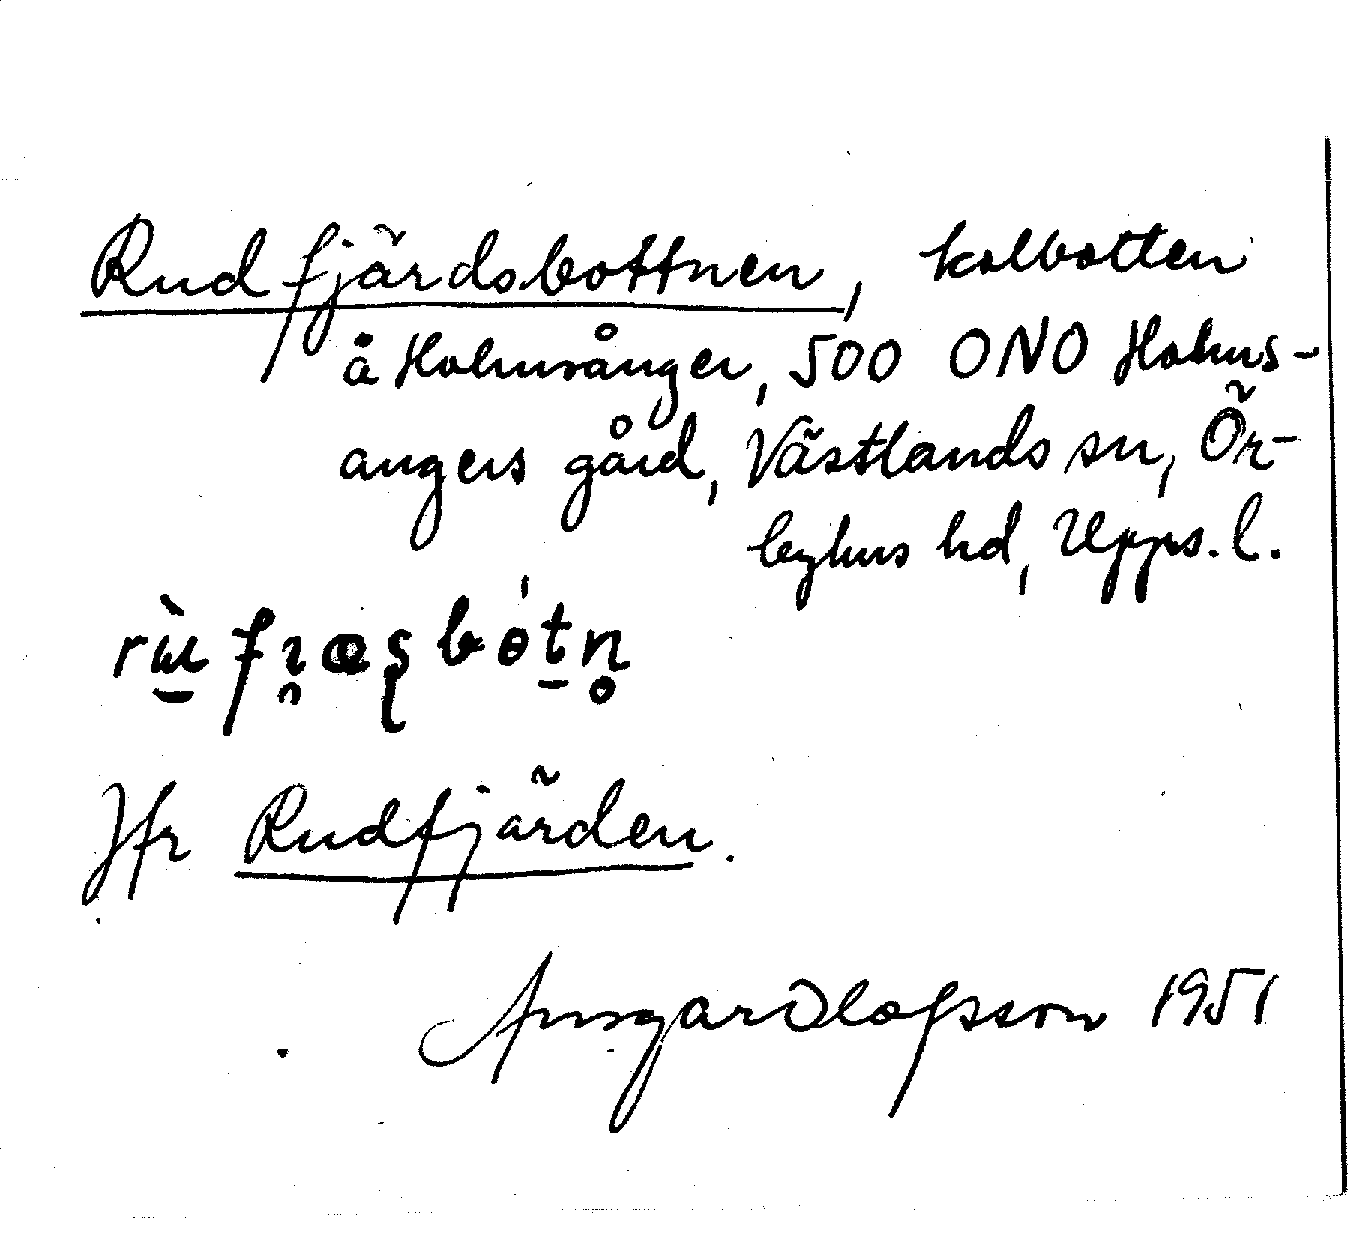 Rudfjärdsbottnen, kolbotten
å Holmsånger, 500 ONO Holms-
ångers gård, Västlands sn, Ör-
byhus hd, Upps. l.
Jfr Rudfjärden.
Ansgar Olofsson 1951